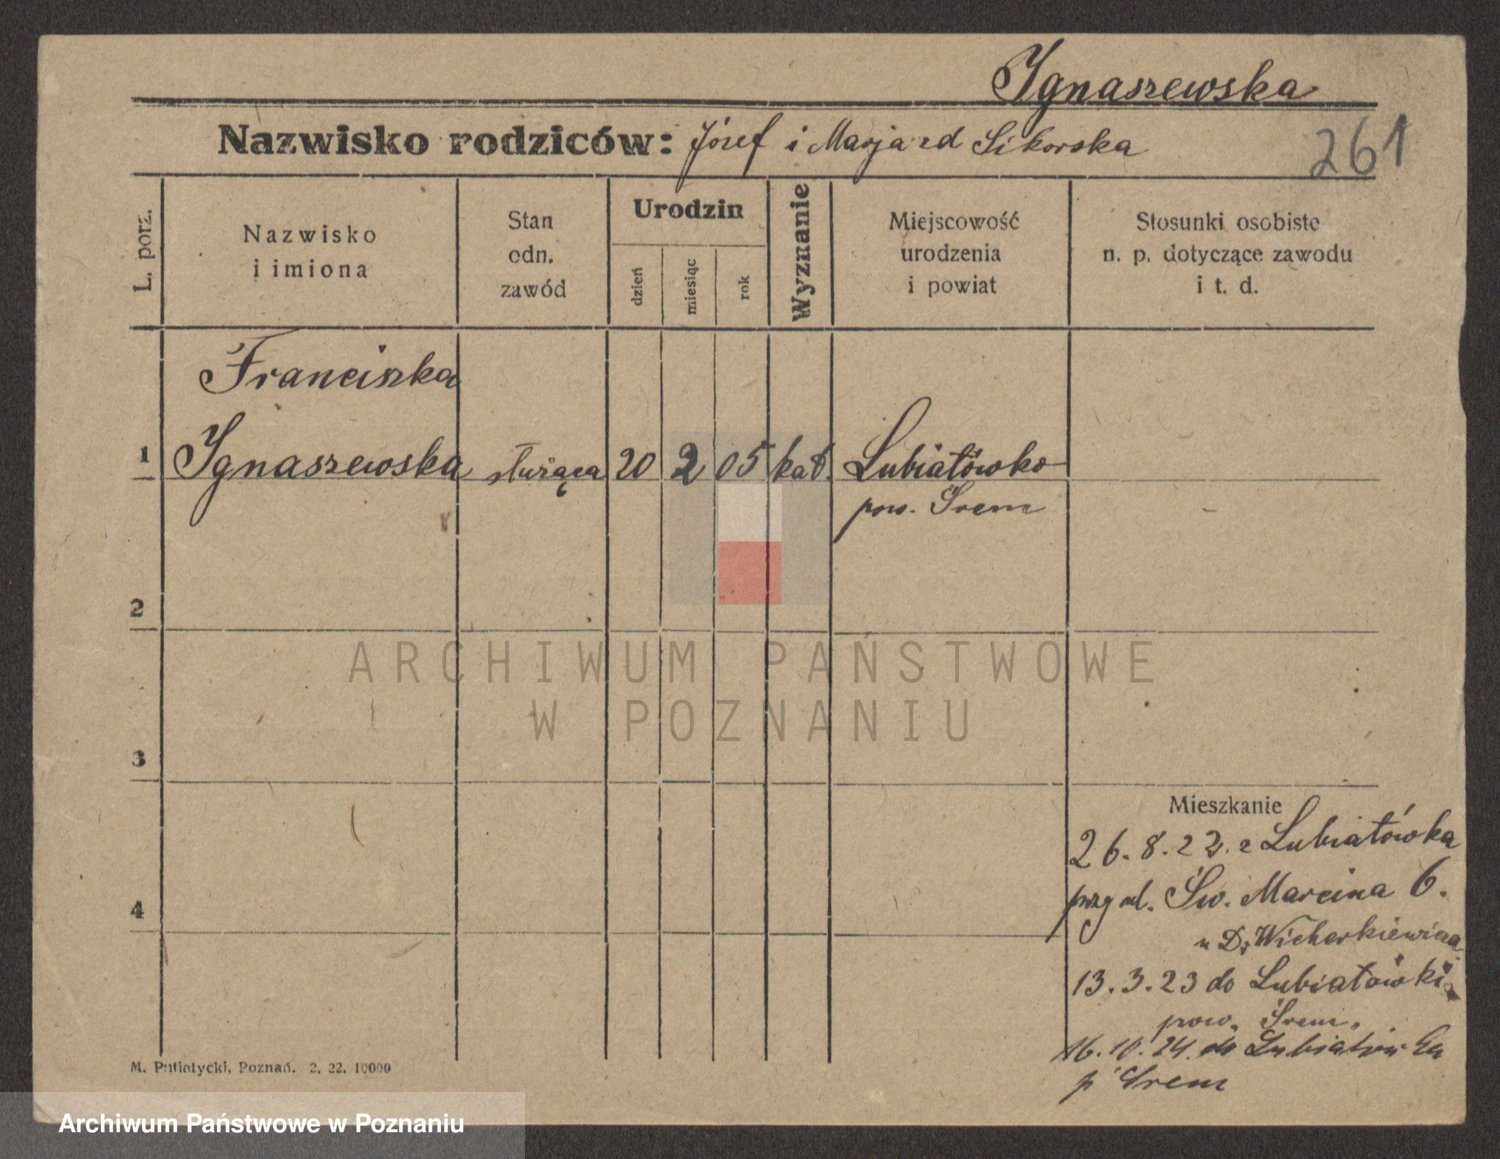 Ignaszewska
Nazwisko rodziców: Józef i Marja zd Sikorska
261
L. porz.
Nazwisko
i imiona
Stan
odn.
zawód
Urodzin
dzień
miesiąc
rok
Wyznanie
Miejscowość
urodzenia
i powiat
Stosunki osobiste
n. p. dotyczące zawodu
i t. d.
Franciszka
1 Ignaszewska służąca 20 2 05 kat. Lubiatówko
pow. Śrem
2
ARCHIWUM PAŃSTWOWE
W POZNANIU
3
Mieszkanie
26.8.22. z Lubiatówka
4
przy ul. Św. Marcina 6.
u Dr Wicherkiewicza
13.3.23 do Lubiatówki
pow. Śrem.
16.10.24. do Lubiatówka
p Śrem
M. Putiatycki, Poznań. 2. 22. 10000
Archiwum Państwowe w Poznaniu